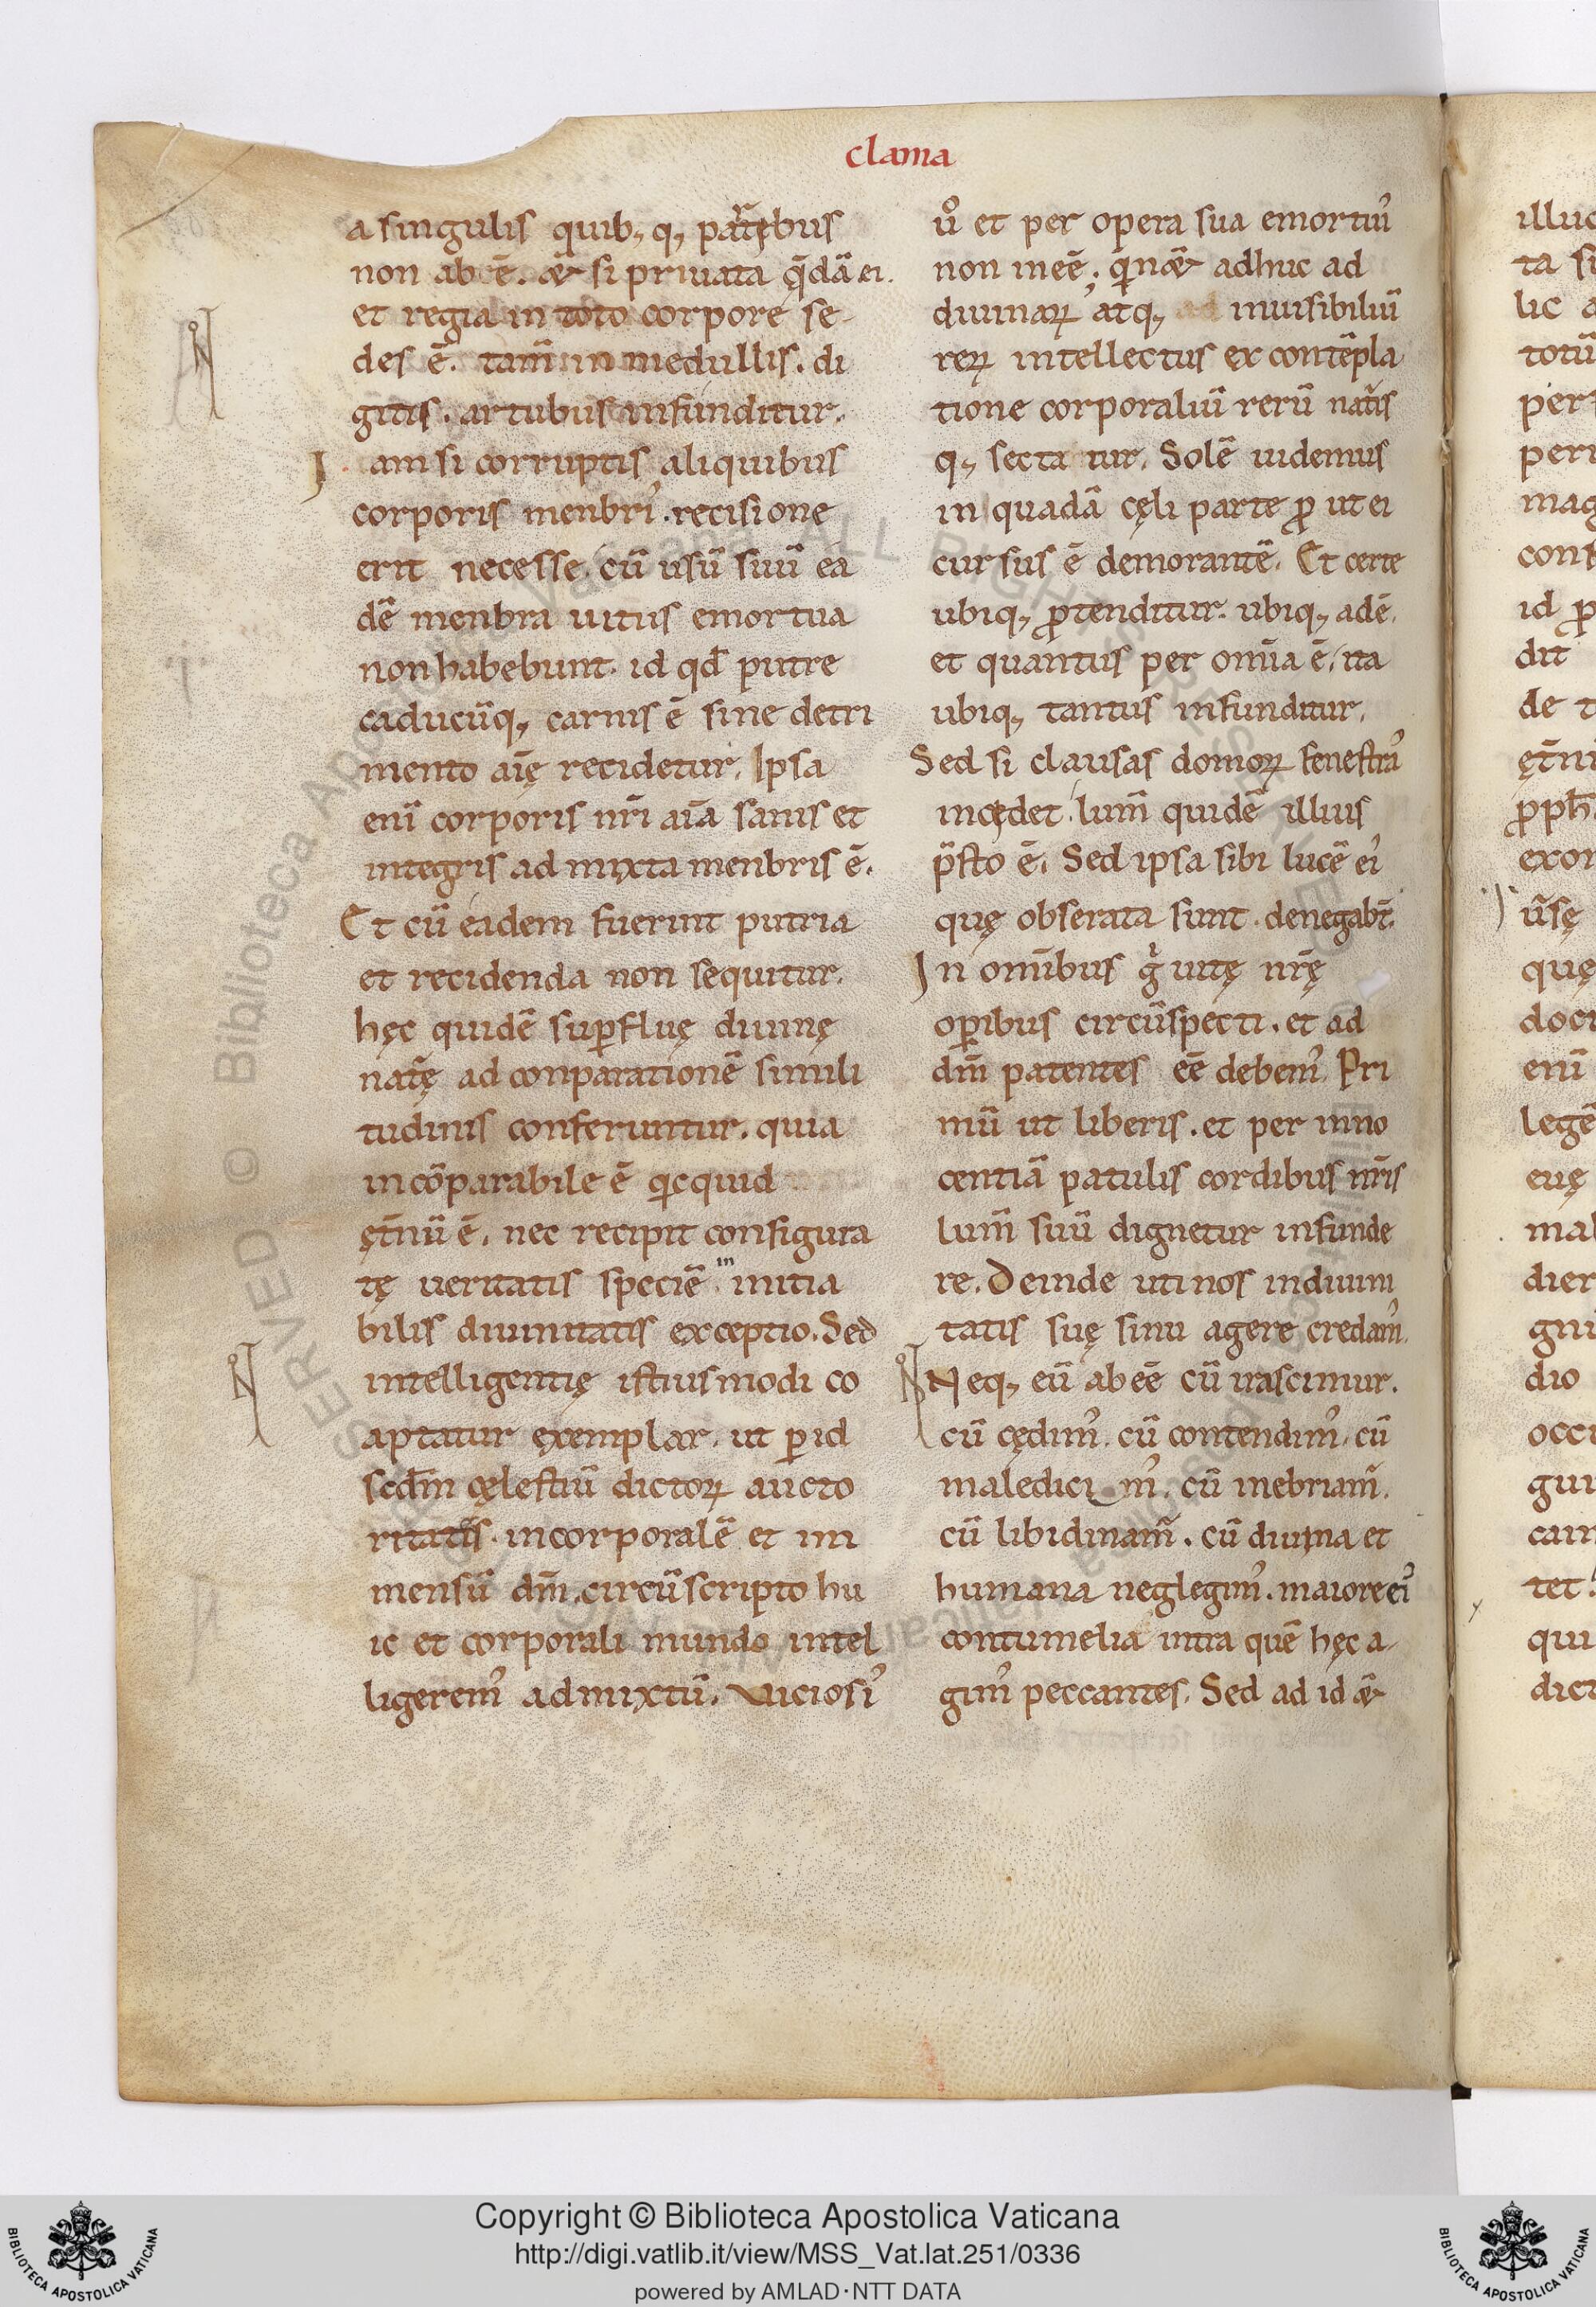 clama
a singulis quib, q, partẹbus
non abeē. & si priuata q̄dā ei.
et regia in toto corpore se-
des ē. tam̄ in medullis. di
gitis. artubus infunditur.
Iam si corruptis aliquibus
corporis menbri᾽. recisione
erit necesse. cū usū suū ea
dē menbra uitus emortua
non habebunt. id qd̄ putre
caducūq, carnis ē sine detri
mento aīę recidetur. Ipsa
enī corporis nr̄i aīa sanis et
integris admixta menbris ē.
Et cū eadem fuerint putria
et recidenda non sequitur.
hęc quidē sup̱fluę diuinę
nat̄ę ad conparationē simili
tudinis conferuntur. quia
incōparabile ē qicquid
ęt̄nū ē. nec recipit configura
tę ueritatis speciē in initia
bilis diuinitatis exceptio. Sed
intelligentię istiusmodi co
aptatur ęxemplar. ut p̱ id
scd̄m cęlestiū dictoꝝ aucto
ritatis. incorporalē et im
mensū dm̄. circūscripto hu
ic et corporali mundo intel
ligerem᾽ admixtū. Viciosi᾽
uͦ et per opera sua emortui᾽
non ineē. qin& adhuc ad
diuinaꝝ atq, inuisibiliū
reꝝ intellectus ex contēpla
tione corporaliū rerū nat̄is
q, secta tur. Solē uidemus
in quadā cęli parte ꝓ ut ei
cursus ē demorantē. Et certe
ubiq, ꝓtenditur. ubiq, adē.
et quantus per om̄ia ē. ita
ubiq, tantus infunditur.
Sed si clausas domoꝝ fenestra᾽
incędet. lum̄ quidē illius
p̄sto ē. Sed ipsa sibi lucē ei᾽
quę obserata sunt. denegabt̄.
In om̄ibus gͥ uitę nr̄ę
op̱ibus circūspecti. et ad
dm̄ patentes eē debem᾽. Pri
mū ut liberis. et per inno
centiā patulis cordibus nr̄is
lum̄ suū dignetur infunde
re. Deinde uti nos in diuini
tatis suę sinu agere credam᾽.
Neq, eū abeē cū irascimur.
cū cędim᾽. cū contendim᾽. cū
maledici m᾽. cū inebriam̄.
cū libidinam̄. cū diuina et
humana neglegim᾽. maiore ei᾽
contumelia intra quē hęc a-
gim᾽ peccantes. Sed ad id &
Copyright © Biblioteca Apostolica Vaticana
http://digi.vatlib.it/view/MSS_Vat.lat.251/0336
powered by AMLAD·NTT DATA
BIBLIOTECA APOSTOLICA VATICANA
BIBLIOTECA APOSTOLICA VATICANA